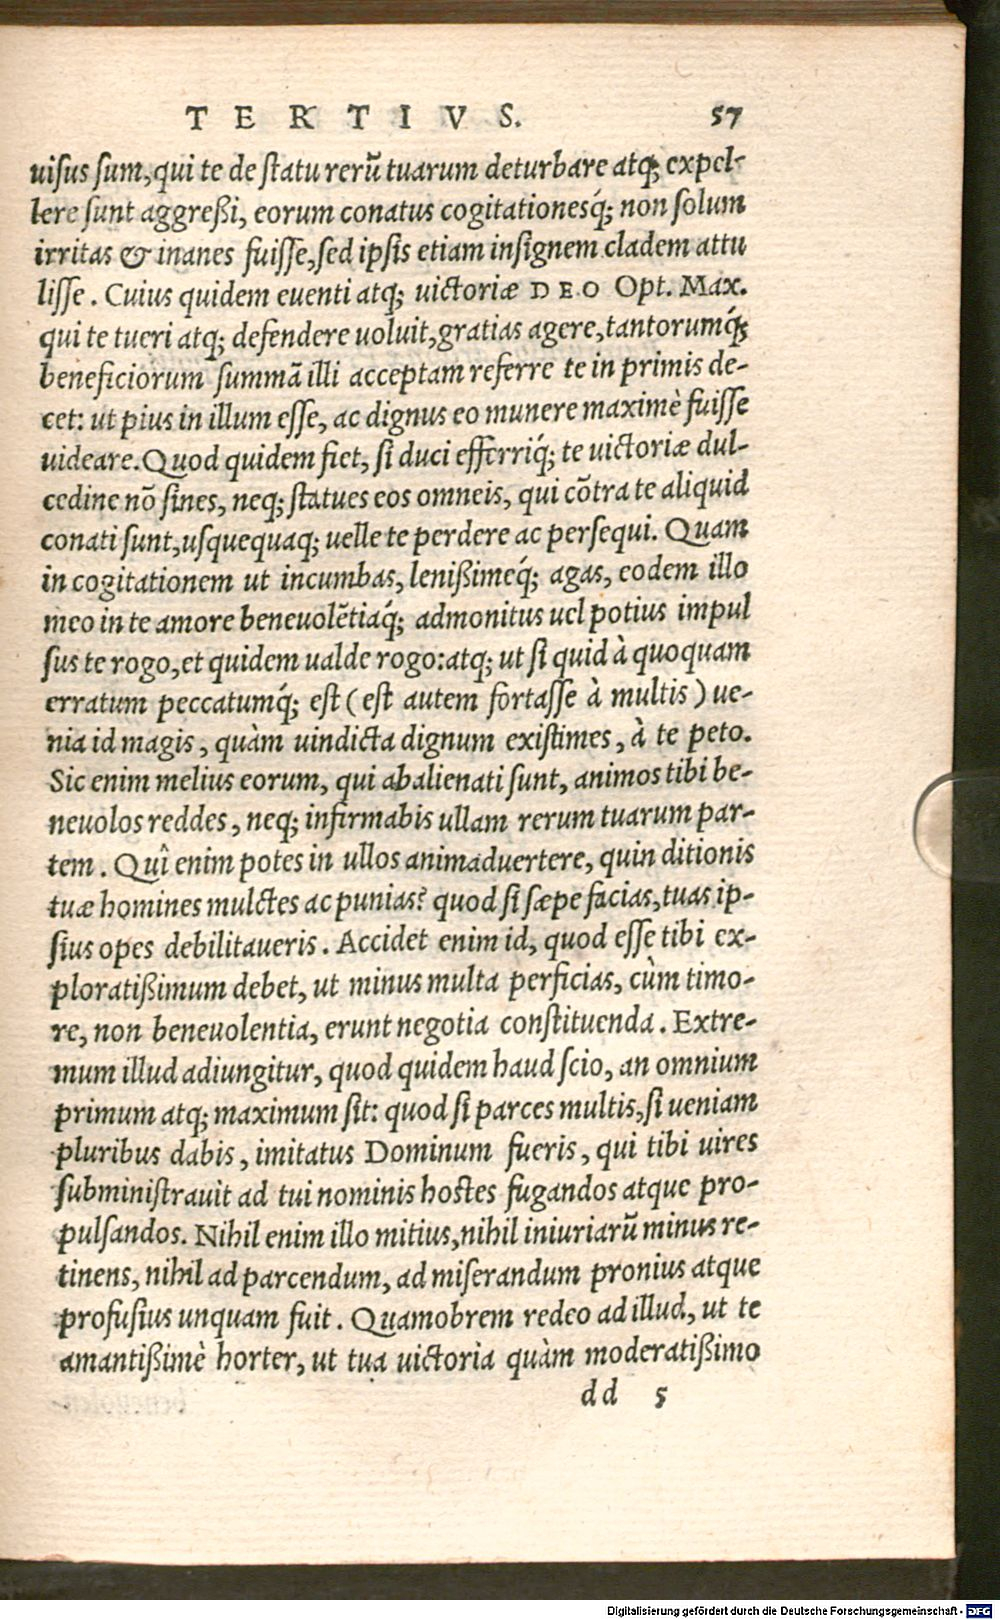 TERTIVS. 57
uisus sum, qui te de statu rerũ tuarum deturbare atq; expel-
lere sunt aggreßi, eorum conatus cogitationesq́; non solum
irritas & inanes fuisse, sed ipsis etiam insignem cladem attu
lisse. Cuius quidem euenti atq; uictoriæ DEO Opt. Max.
qui te tueri atq; defendere uoluit, gratias agere, tantorumq́;
beneficiorum summã illi acceptam referre te in primis de-
cet: ut pius in illum esse, ac dignus eo munere maximè fuisse
uideare. Quod quidem fiet, si duci efferriq́; te uictoriæ dul-
cedine nõ sines, neq; statues eos omneis, qui cõtra te aliquid
conati sunt, usquequaq; uelle te perdere ac persequi. Quam
in cogitationem ut incumbas, lenißimeq́; agas, eodem illo
meo in te amore beneuolẽtiaq́; admonitus uel potius impul
sus te rogo, et quidem ualde rogo: atq; ut si quid à quoquam
erratum peccatumq́; est (est autem fortasse à multis) ue-
nia id magis, quàm uindicta dignum existimes, à te peto.
Sic enim melius eorum, qui abalienati sunt, animos tibi be-
neuolos reddes, neq; infirmabis ullam rerum tuarum par-
tem. Quî enim potes in ullos animaduertere, quin ditionis
tuæ homines mulctes ac punias? quod si sæpe facias, tuas ip-
sius opes debilitaueris. Accidet enim id, quod esse tibi ex-
ploratißimum debet, ut minus multa perficias, cùm timo-
re, non beneuolentia, erunt negotia constituenda. Extre-
mum illud adiungitur, quod quidem haud scio, an omnium
primum atq; maximum sit: quod si parces multis, si ueniam
pluribus dabis, imitatus Dominum fueris, qui tibi uires
subministrauit ad tui nominis hostes fugandos atque pro-
pulsandos. Nihil enim illo mitius, nihil iniuriarũ minus re-
tinens, nihil ad parcendum, ad miserandum pronius atque
profusius unquam fuit. Quamobrem redeo ad illud, ut te
amantißimè horter, ut tua uictoria quàm moderatißimo
dd 5
Digitalisierung gefördert durch die Deutsche Forschungsgemeinschaft - DFG